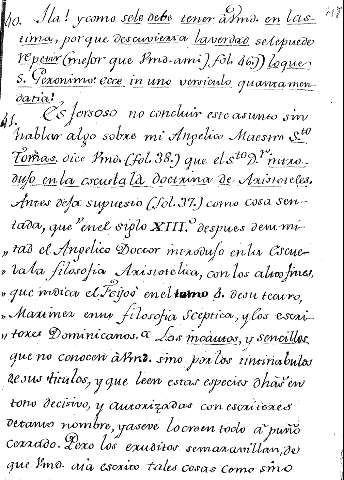 40. Ila! y como solo debe tener à Vmd. en las-
tima, porque descuvierta la verdad se le puede
repetir (mejor que Vmd. a mi) fol. 46)) lo que
S. Geronimo: ecce in uno versiculo quanta men-
dacia!
41. Es forsoso no concluir este asunto sin
hablar algo sobre mi Angelico Maestro Sto
Tomas. dice Vmd. (fol. 38.) que el Sto Dr. intro-
dujo en la escuela la doctrina de Aristoteles.
Antes deja supuesto (fol. 37.) como cosa sen-
tada, que en el siglo XIII. despues de mi-
tad el Angelico Doctor introdujo en la Escue-
" la la filosofia Aristotelica, con los altos fines,
" que indica el Feijoò en el tomo 4. de su teatro,
" Maximer en su filosofia Sceptica, y los escri-
" tores Dominicanos. A Los incautos, y sencillos
que no conocen à Vmd. sino por los tintinabulos
de sus titulos, y que leen estas especies dhas en
tono decisivo, y autorizadas con escritores
de tanto nombre, ya se ve lo creen todo à puño
cerrado. Pero los eruditos se maravillan, de
que Vmd. aia escrito tales cosas como sino